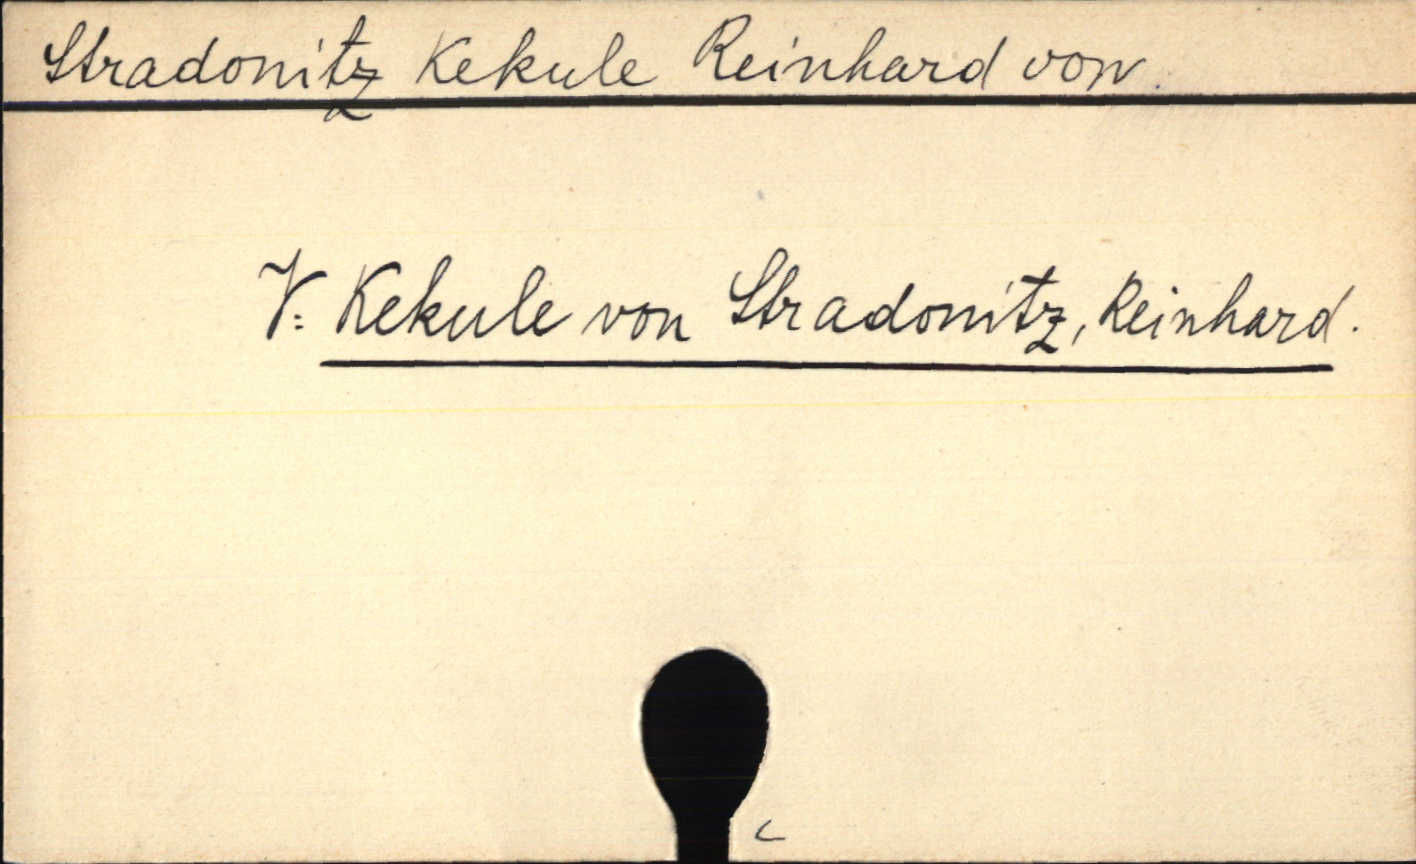 Stradonitz Kekule Reinhard von.
V: Kekule von Stradonitz, Reinhard.